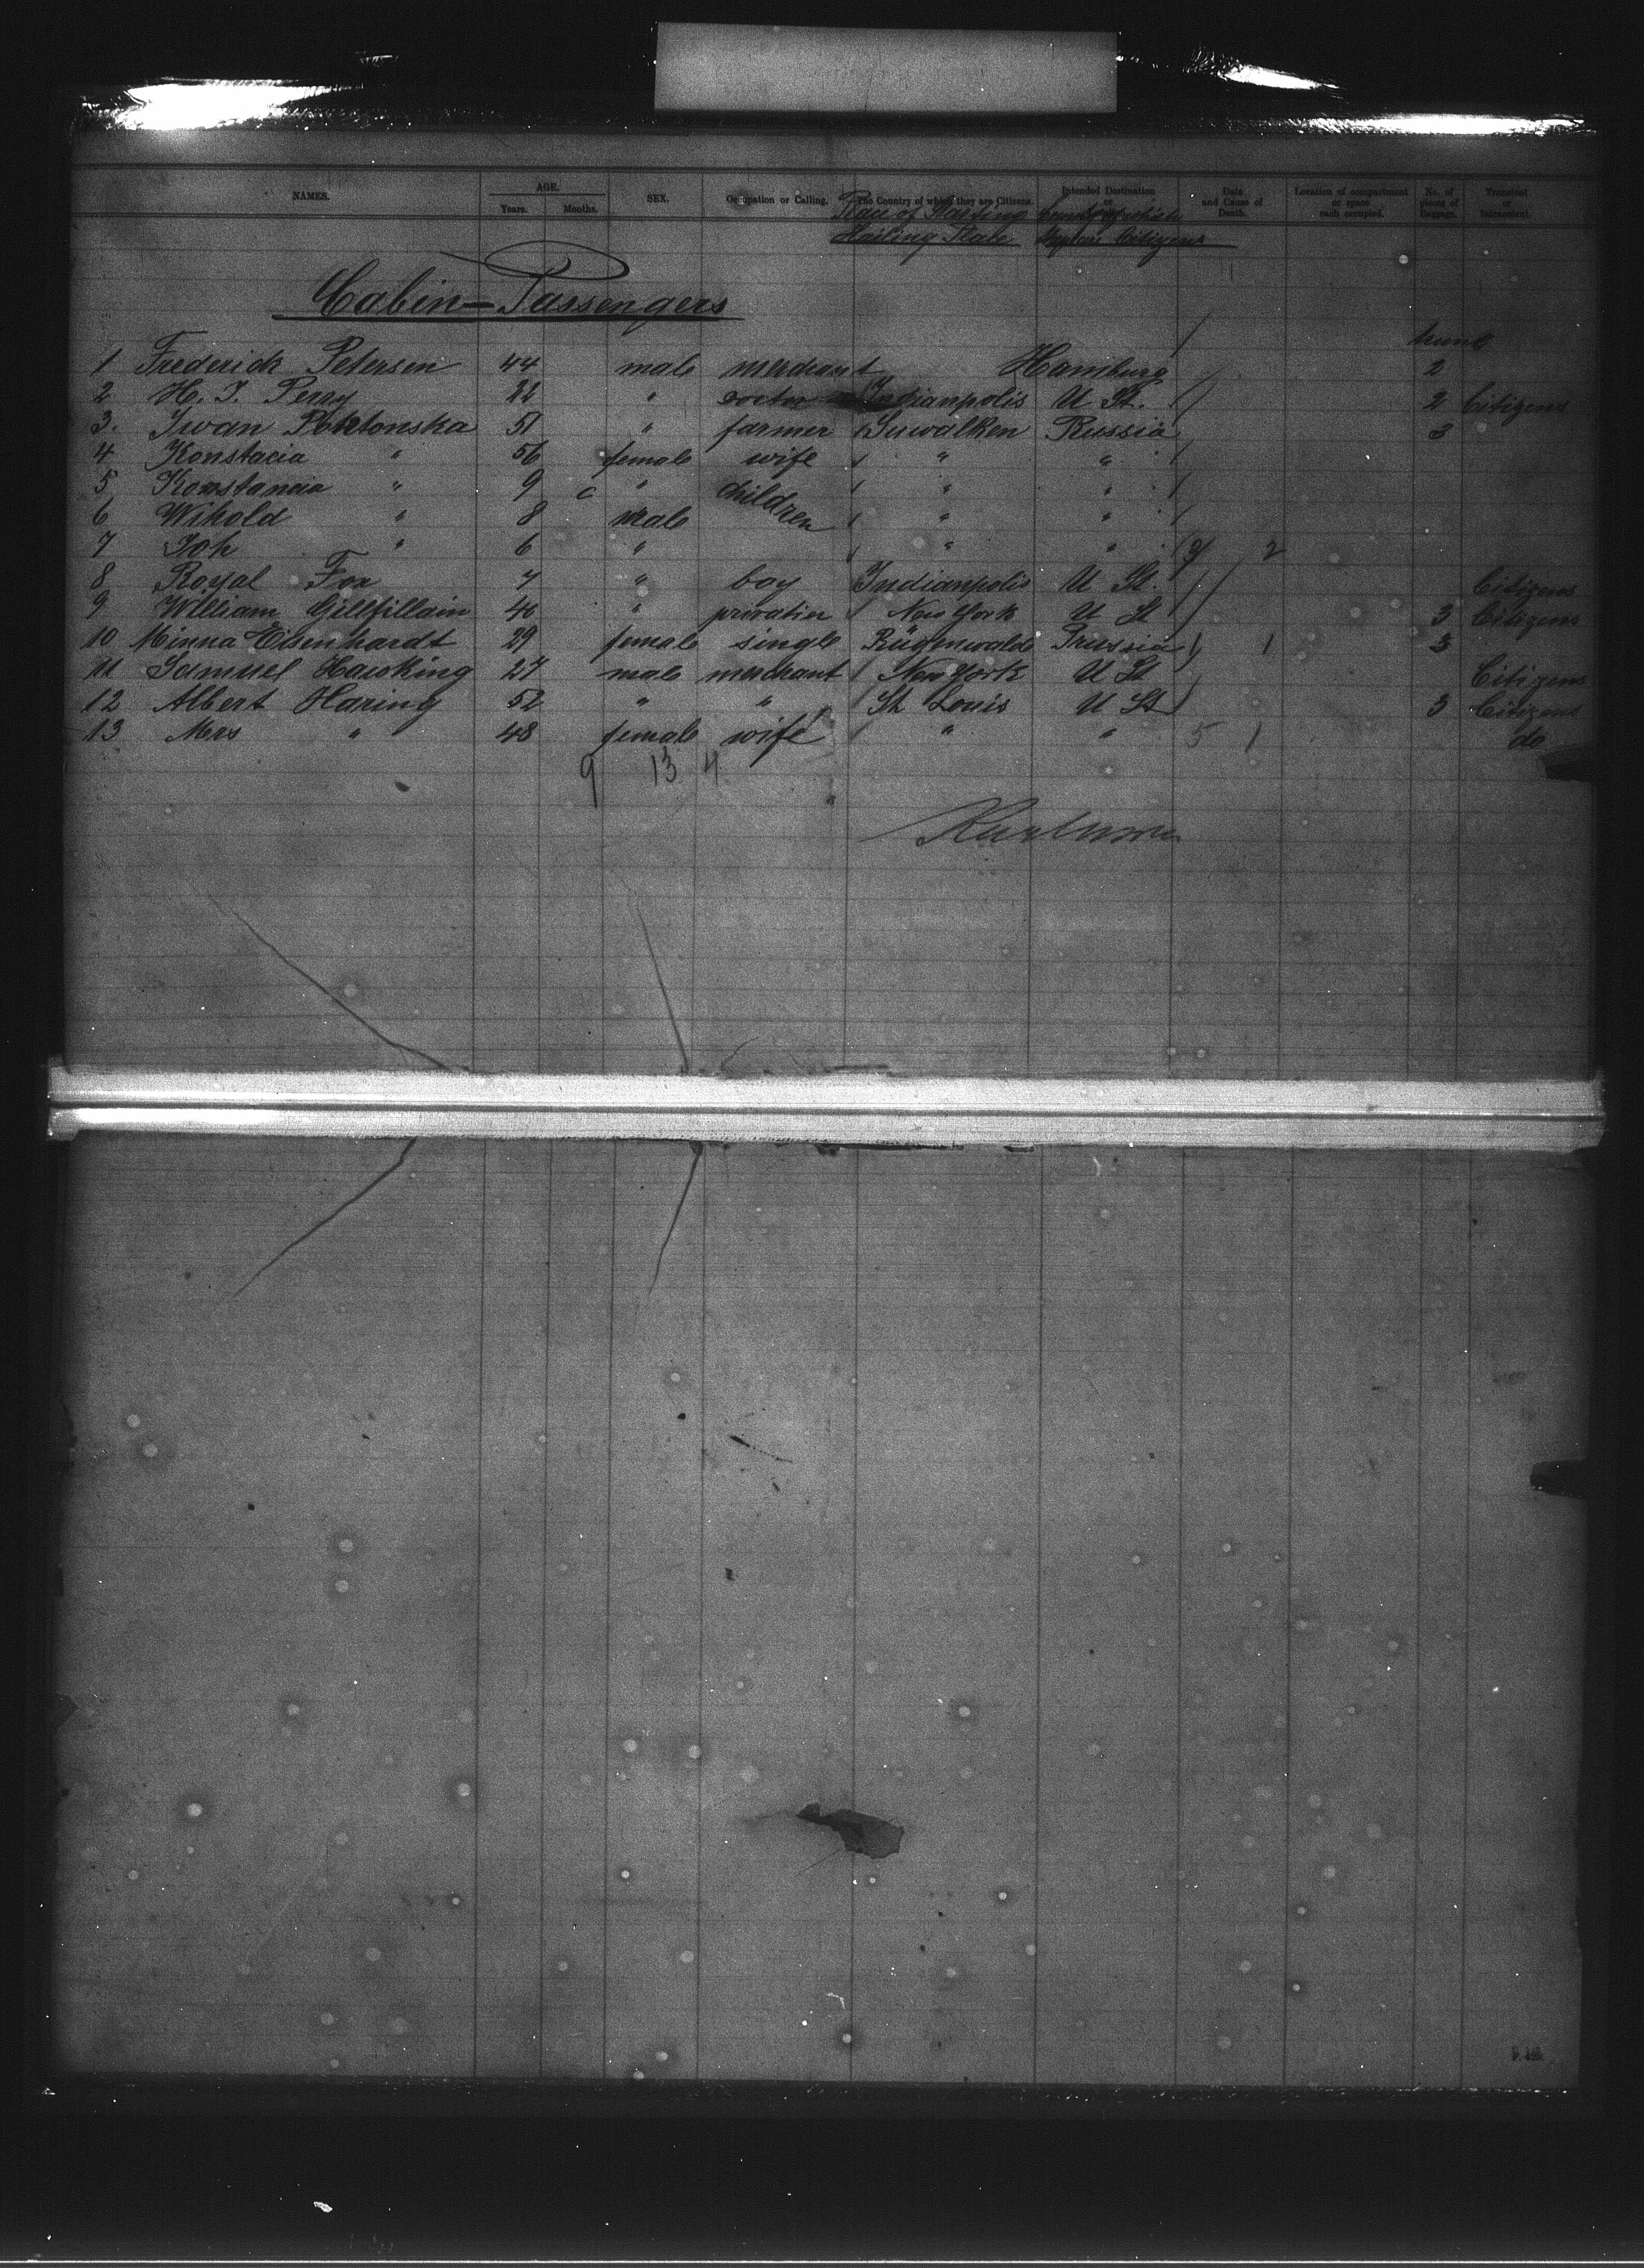 NAMES. AGE. Years. Months. SEX. Occupation or Calling. The Country of which they are Citizens. Intended Destination or Date and Cause of Death. Location of compartment or space each occupied. No. of pieces of Baggage. Transient or Intransient.
Place of Starting Country of which
Hailing Place they are Citizens
Cabin-Passengers
1 Frederick Petersen 44 male merchant Hamburg 2
2 H. T. Perry 22 " doctor Indianpolis U St. 2 Citizens
3. Iwan 51 " farmer Suwalken Russia 3
4 Konstacia " 56 female wife " "
5 Konstancia " 9 c " children " "
6 Wihold " 8 male " "
7 Joh " 6 " " " 2
8 Royal Fox 7 " boy Indianpolis U St. Citizens
9 William Gillfillain 40 " privatier New York U St 3 Citizens
10 Minna Eisenhardt 29 female single Rügenwalde Prussia 1 3
11 Samuel Hawking 27 male merchant New York U St Citizens
12 Albert Haring 52 " " St Louis U St 3 Citizens
13 Mrs " 48 female wife " " 5 1 do
9 13 4